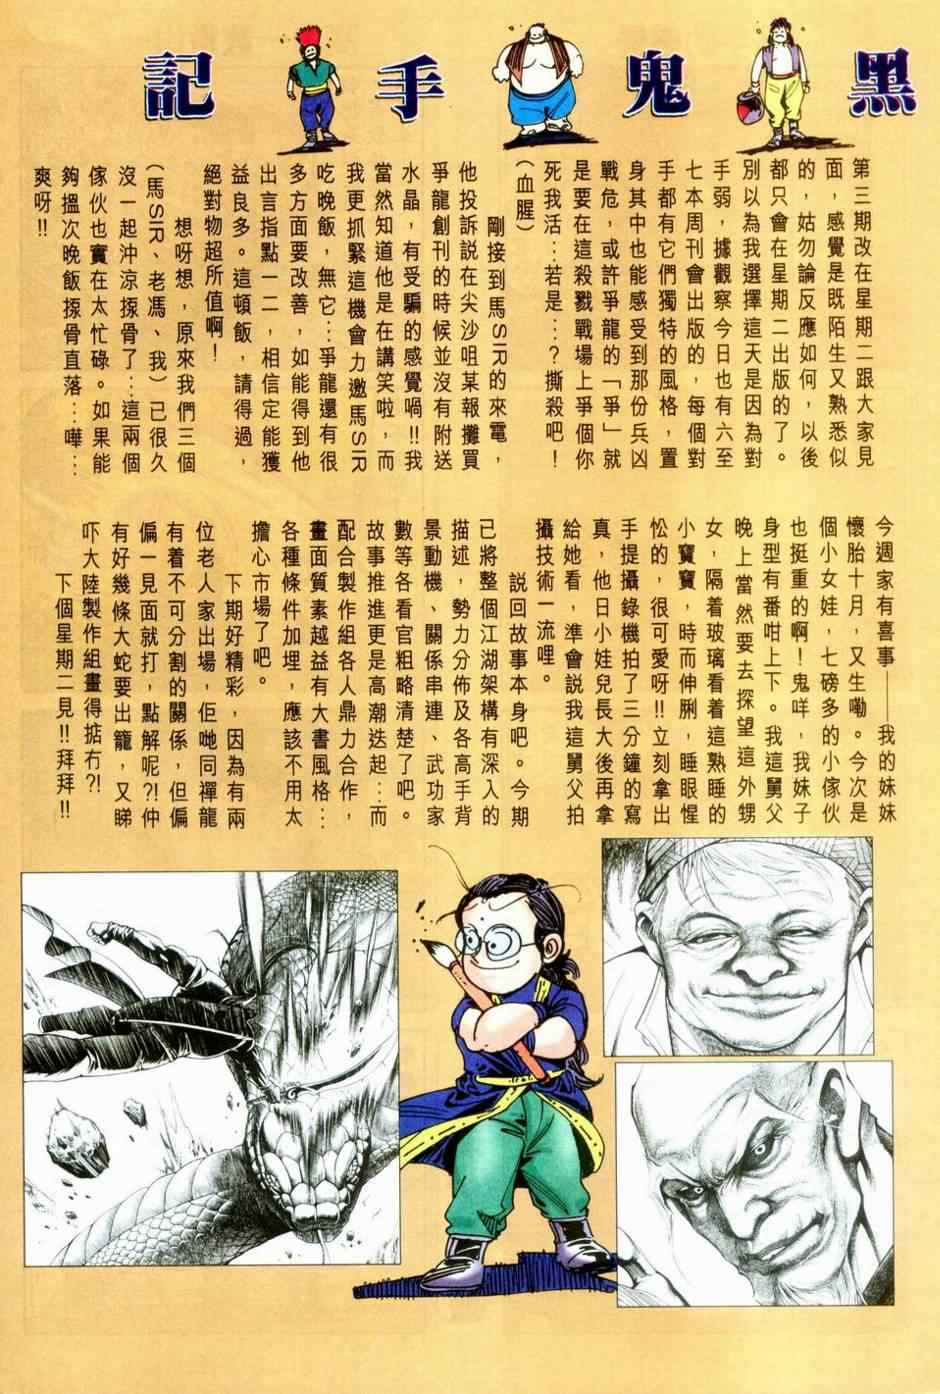 黑鬼手記
第三期改在星期二跟大家見
面，感覺是既陌生又熟悉似
的，姑勿論反應如何，以後
都只會在星期二出版的了。
別以為我選擇這天是因為對
手弱，據觀察今日也有六至
七本周刊會出版的，每個對
手都有它們獨特的風格，置
身其中也能感受到那份兵凶
戰危，或許爭龍的「爭」就
是要在這殺戮戰場上爭個你
死我活：：若是：：？撕殺吧！
（血腥）
剛接到馬SIR的來電，
他投訴說在尖沙咀某報攤買
爭龍創刊的時候並沒有附送
水晶，有受騙的感覺喎!!我
當然知道他是在講笑啦，而
我更抓緊這機會力邀馬SIR
吃晚飯，無它：：爭龍還有很
多方面要改善，如能得到他
出言指點一二，相信定能獲
益良多。這頓飯，請得過，
絕對物超所值啊！
想呀想，原來我們三個
（馬SIR、老馮、我）已很久
沒一起沖涼揼骨了：：這兩個
傢伙也實在太忙碌。如果能
夠搵次晚飯揼骨直落：：嘩：：
爽呀!!
今週家有喜事——我的妹妹
懷胎十月，又生嘞。今次是
個小女娃，七磅多的小傢伙
也挺重的啊！鬼咩，我妹子
身型有番咁上下。我這舅父
晚上當然要去探望這外甥
女，隔着玻璃看着這熟睡的
小寶寶，時而伸脷，睡眼惺
忪的，很可愛呀!!立刻拿出
手提攝錄機拍了三分鐘的寫
真，他日小娃兒長大後再拿
給她看，準會説我這舅父拍
攝技術一流哩。
説回故事本身吧。今期
已將整個江湖架構有深入的
描述，勢力分佈及各高手背
景動機、關係串連、武功家
數等各看官粗略清楚了吧。
故事推進更是高潮迭起：：而
配合製作組各人鼎力合作，
畫面質素越益有大書風格：：
各種條件加埋，應該不用太
擔心市場了吧。
下期好精彩，因為有兩
位老人家出場，佢哋同禪龍
有着不可分割的關係，但偏
偏一見面就打，點解呢?!仲
有好幾條大蛇要出籠，又睇
吓大陸製作組畫得掂冇?!
下個星期二見!!拜拜!!